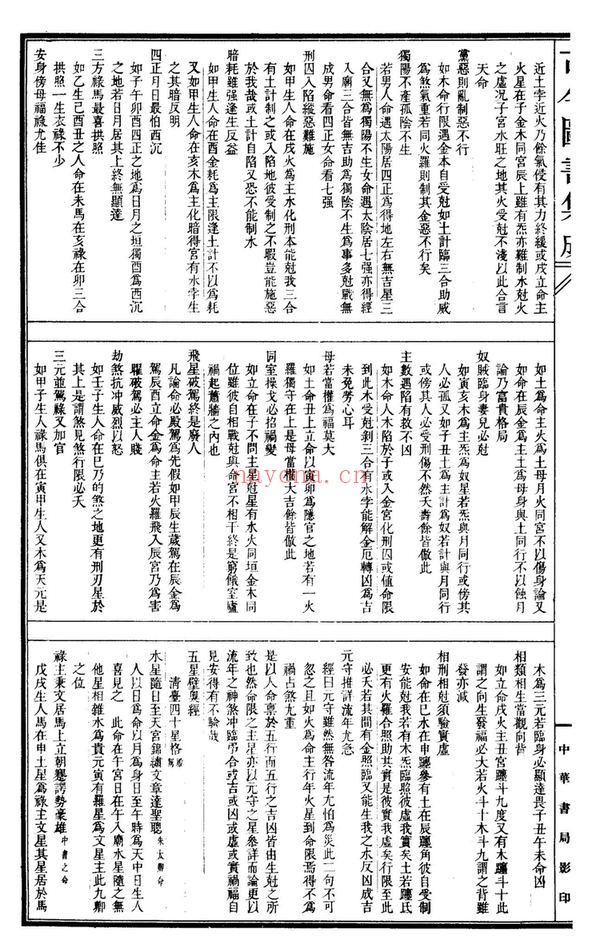 近土孛近火乃餘氣侵有其力終緩或戌立命主
火星在子金木同宮辰上雖有炁亦難制水尅火
之虛况子宮水旺之地其火受尅不淺以此合言
天命
黨惡則亂制惡不行
如木命行限遇金本自受尅如土計臨三合助威
爲煞氣重若同火羅則制其金惡不行矣
獨陽不產孤陰不生
若男人命遇太陽居四正爲得地左右無吉星三
合又無爲獨陽不生女命遇太陰居七强亦得經
入廟三合皆無吉助爲獨陰不生爲事多尅戰無
成男命看四正女命看七强
刑囚入陷縱惡難施
如甲生人命在戌火爲主水化刑本能尅我三合
有土計制之或入陷地彼受制之不暇豈能施惡
於我哉或土計自陷又恐不能制水
暗耗雖强逢生反益
如甲生人命在酉金耗爲主限逢土計不以爲耗
又如甲生人命在亥木爲主化暗得宮有水孛生
之其暗反明
四正月日最怕酉沉
如子午卯酉四正之地爲日月之垣獨酉爲酉沉
之地若日月居其上終無顯達
三方祿馬最喜拱照
如乙生己酉丑之人命在未馬在亥祿在卯三合
拱照一生衣祿不少
安身傍母福祿尤佳
如土爲命主火爲土母月火同宮不以傷身論又
如命在辰金爲主土爲母身與土同行不以蝕月
論乃富貴格局
奴賊臨身妻兒必尅
如寅亥木爲主炁爲奴星若炁與月同行或傍其
人必孤又如子丑土爲主計爲奴若計與月同行
或傍其人必受刑傷不然夭壽餘皆倣此
主數遇陷有救不凶
如木命人木陷於子或入金宮化刑囚或值命限
到此木受尅剝三合有水孛能解金厄轉凶爲吉
未免勞心耳
母若當權爲福莫大
如土命丑上立命以寅卯爲隱官之地若有一火
羅獨守在上是母當權大吉餘皆倣此
同室操戈必招禍變
如立命在子不問主星尅星有水火同垣金木同
位雖彼自相戰尅與命宮不相干終是窮儵室廬
禍起蕭牆之內也
飛星破駕終是廢人
凡論命必觀駕爲先假如甲辰生歲駕在辰金爲
駕辰酉立命金爲命主若火羅飛入辰宮乃爲害
駕破駕必主人賤
劫煞抗冲威烈以怒
如壬子生人命在巳乃的煞之地更有刑刃星於
其上是謂煞見煞行限必夭
三元並駕祿又加官
如甲子生人祿馬俱在寅甲生人又木爲天元是
木爲三元若臨身必顯達畏子丑午未命凶
相類相生當觀向背
如立命戌火主丑宮躔斗九度又有木躔斗十此
謂之向生發福必大若火斗十木斗九謂之背雖
發亦減
相刑相尅須驗實虛
如命在巳水在申躔參有土在辰躔角彼自受制
安能尅我若有木炁臨照彼虛我實矣土若躔氐
更有火羅合照助其實是彼實我虛矣行限至此
必夭若其間有金照臨又能生我之水反凶成吉
元守推詳流年尤急
經曰元守雖然無咎流年尤怕爲災此二句不可
忽之且如火爲命主行年火星到命限焉得不爲
禍占煞尤重
是以人命稟於五行而五行之吉凶皆由生尅之所
致也然命限之主星亦以元守之星參詳而論更以
流年之神煞冲臨帶合或吉或凶或虛或實禍福自
見安得有不驗哉
五星壁奧經
清臺四十星格局
水星隨日至天宮錦繡文章達聖聰朱太卿命
人以日爲命以月爲身日至午時爲天中日生人
喜見之此命在午宮日在午入廟水星隨之無
他星相雜木爲貴元寅有羅星爲文星主此九卿
之位
祿主秉文居馬上立朝蹇諤勢豪雄中書之命
戊戌生人馬在申土星爲祿主文星其星居於馬
中華書局影印
nayona.cn